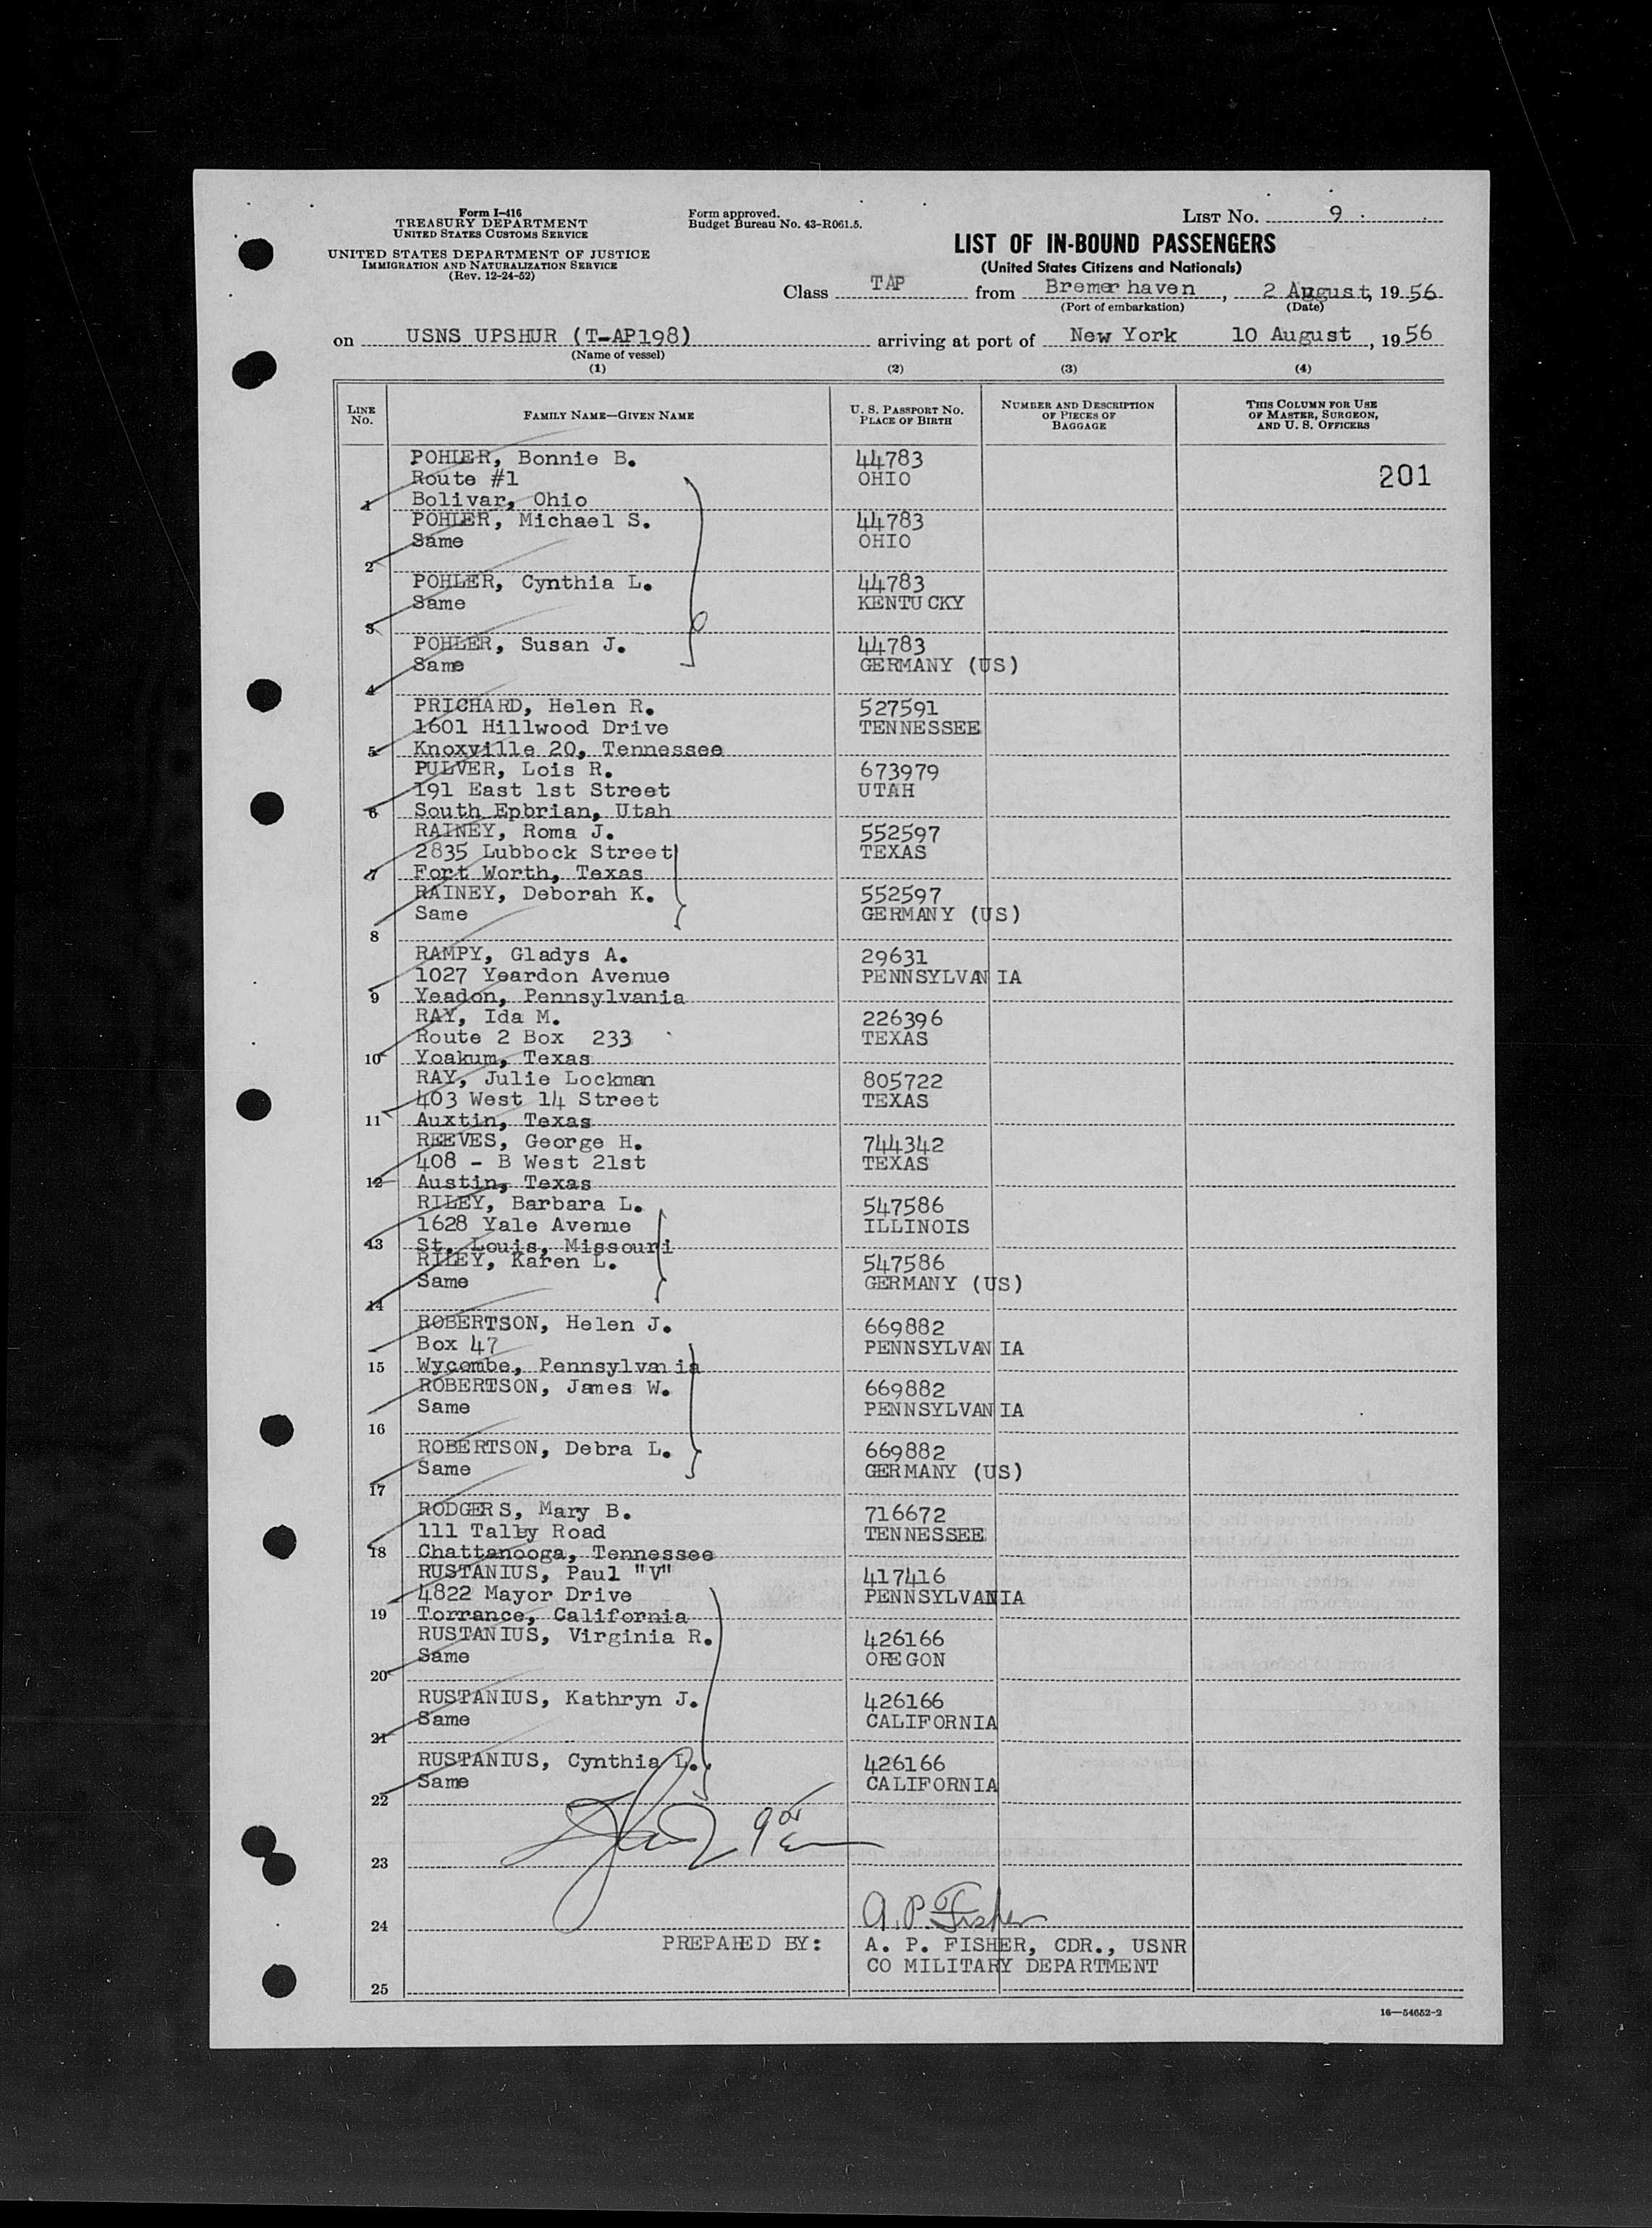 Form I-416
TREASURY DEPARTMENT
UNITED STATES CUSTOMS SERVICE
UNITED STATES DEPARTMENT OF JUSTICE
IMMIGRATION AND NATURALIZATION SERVICE
(Rev. 12-24-52)
Form approved.
Budget Bureau No. 43-R061.5.
LIST NO. 9
LIST OF IN-BOUND PASSENGERS
(United States Citizens and Nationals)
Class TAP from Bremerhaven, 2 August, 19 56
(Port of embarkation) (Date)
on USNS UPSHUR (T-AP198) arriving at port of New York 10 August, 19 56
(Name of vessel)
(1) (2) (3) (4)
LINE NO. FAMILY NAME—GIVEN NAME U. S. PASSPORT NO. PLACE OF BIRTH NUMBER AND DESCRIPTION OF PIECES OF BAGGAGE THIS COLUMN FOR USE OF MASTER, SURGEON, AND U. S. OFFICERS
POHLER, Bonnie B. 44783
Route #1 OHIO 201
1 Bolivar, Ohio
POHLER, Michael S. 44783
Same OHIO
2
POHLER, Cynthia L. 44783
Same KENTUCKY
3
POHLER, Susan J. 44783
Same GERMANY (US)
4
PRICHARD, Helen R. 527591
1601 Hillwood Drive TENNESSEE
5 Knoxville 20, Tennessee
PULVER, Lois R. 673979
191 East 1st Street UTAH
6 South Epbrian, Utah
RAINEY, Roma J. 552597
2835 Lubbock Street TEXAS
7 Fort Worth, Texas
RAINEY, Deborah K. 552597
Same GERMANY (US)
8
RAMPY, Gladys A. 29631
1027 Yeardon Avenue PENNSYLVANIA
9 Yeadon, Pennsylvania
RAY, Ida M. 226396
Route 2 Box 233 TEXAS
10 Yoakum, Texas
RAY, Julie Lockman 805722
403 West 14 Street TEXAS
11 Auxtin, Texas
REEVES, George H. 744342
408 - B West 21st TEXAS
12 Austin, Texas
RILEY, Barbara L. 547586
1628 Yale Avenue ILLINOIS
13 St. Louis, Missouri
RILEY, Karen L. 547586
Same GERMANY (US)
14
ROBERTSON, Helen J. 669882
Box 47 PENNSYLVANIA
15 Wycombe, Pennsylvania
ROBERTSON, James W. 669882
Same PENNSYLVANIA
16
ROBERTSON, Debra L. 669882
Same GERMANY (US)
17
RODGERS, Mary B. 716672
111 Talley Road TENNESSEE
18 Chattanooga, Tennessee
RUSTANIUS, Paul "V" 417416
4822 Mayor Drive PENNSYLVANIA
19 Torrance, California
RUSTANIUS, Virginia R. 426166
Same OREGON
20
RUSTANIUS, Kathryn J. 426166
Same CALIFORNIA
21
RUSTANIUS, Cynthia L. 426166
Same CALIFORNIA
22
23
A. P. Fisher
24
PREPARED BY: A. P. FISHER, CDR., USNR
CO MILITARY DEPARTMENT
25
16—54652-2